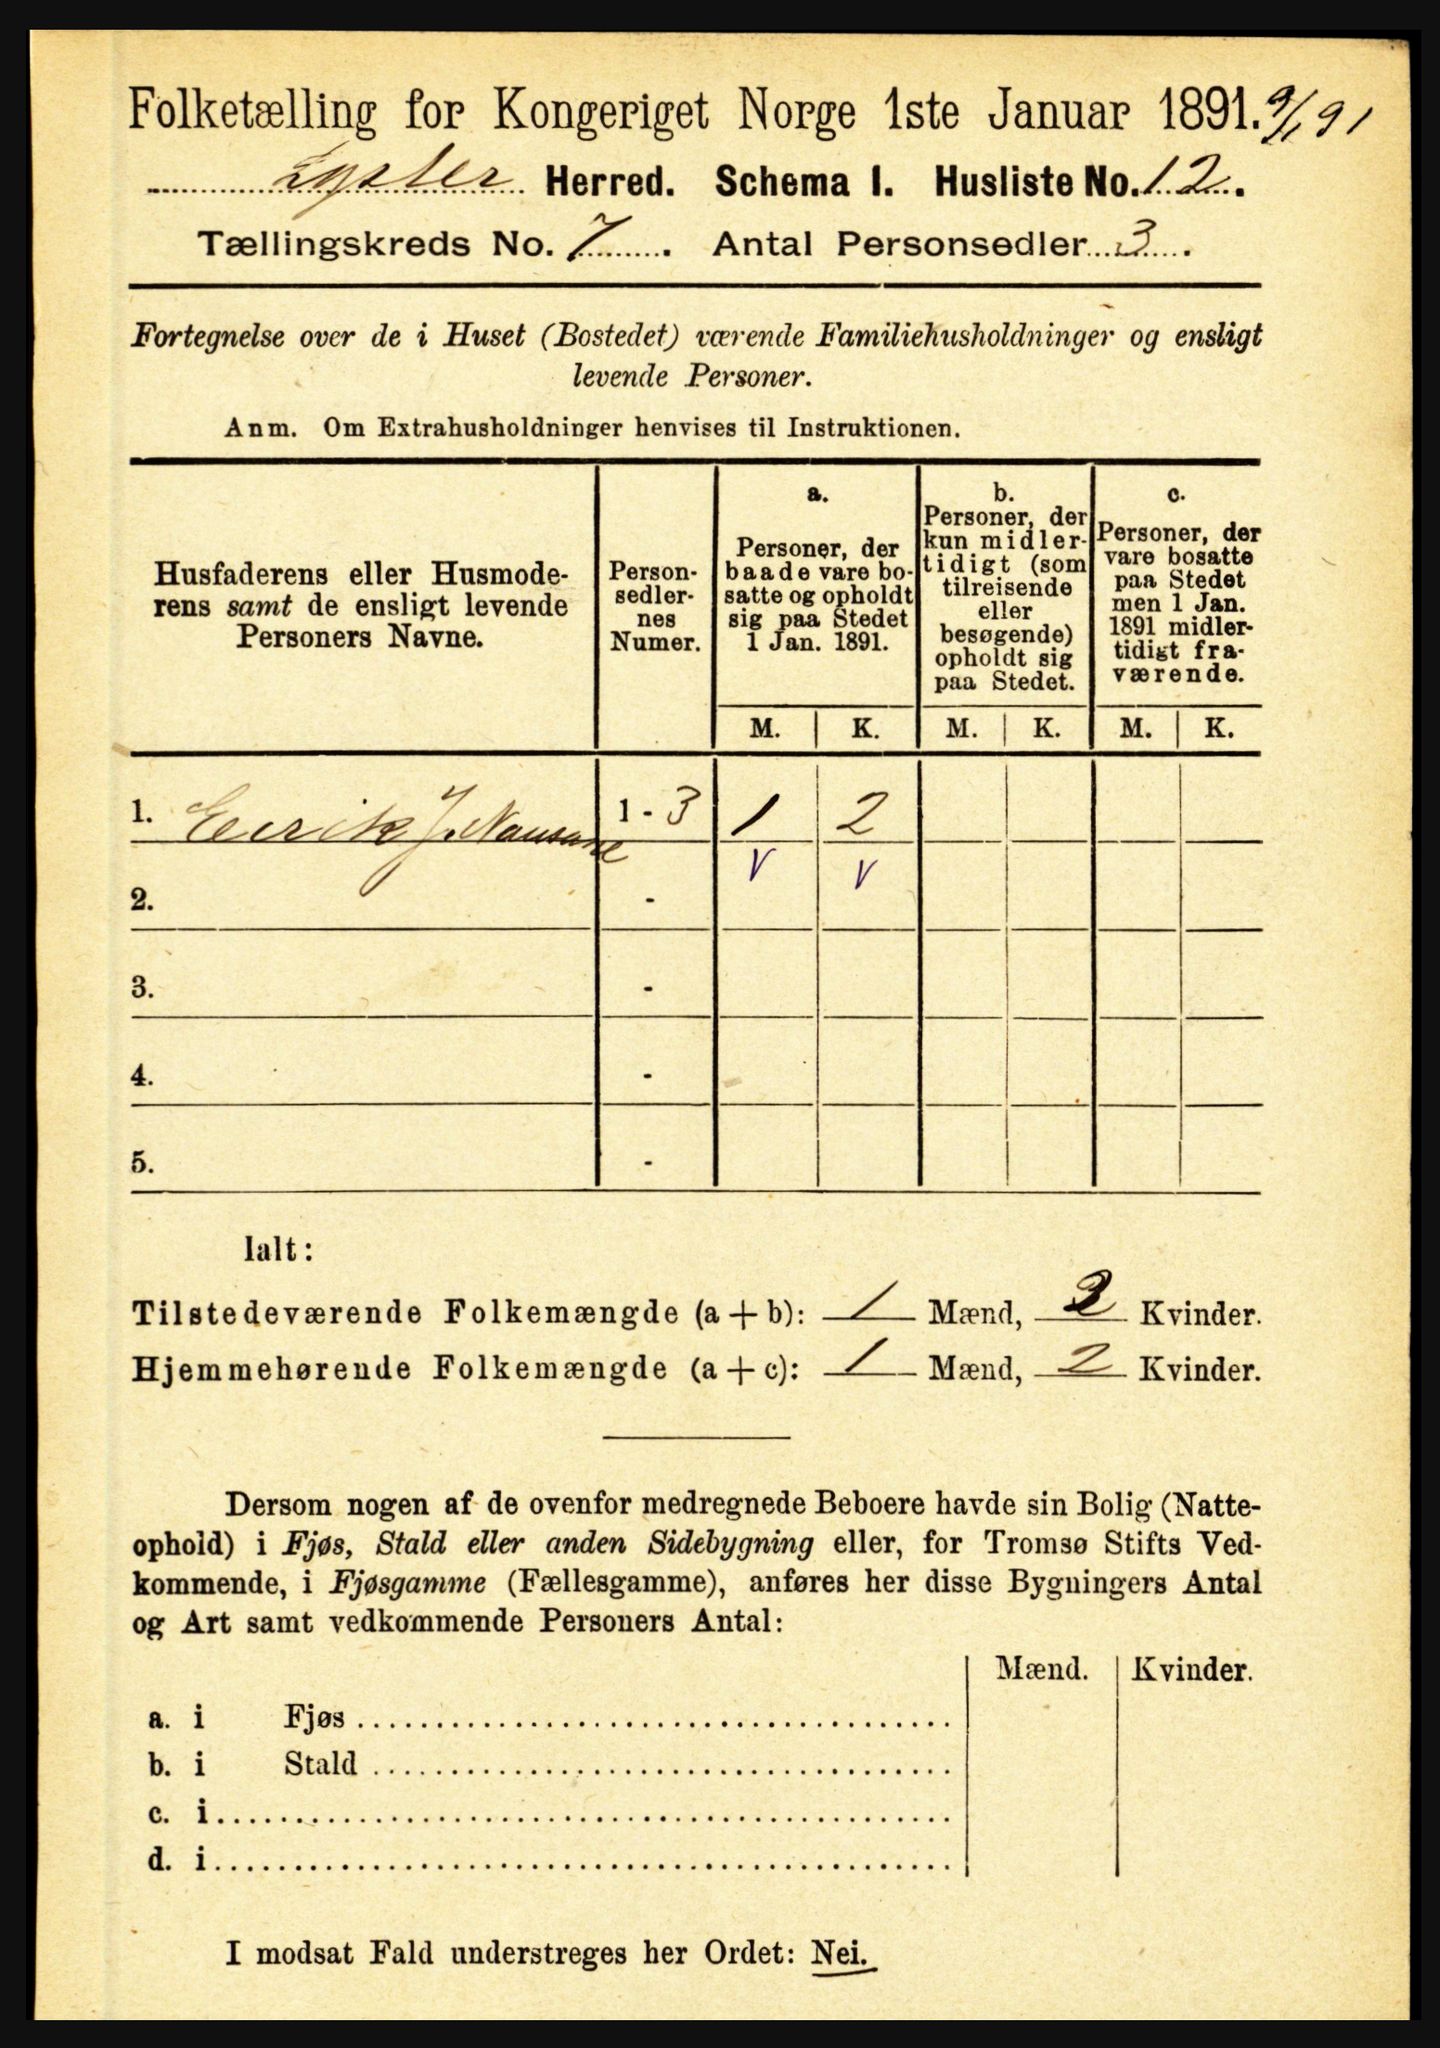 Folketælling for Kongeriget Norge 1ste Januar 1891. 9/1 91
Lyster Herred. Schema I. Husliste No. 12.
Tællingskreds No. 7. Antal Personsedler 3.
Fortegnelse over de i Huset (Bostedet) værende Familiehusholdninger og ensligt
levende Personer.
Anm. Om Extrahusholdninger henvises til Instruktionen.
Husfaderens eller Husmode-
rens samt de ensligt levende
Personers Navne.
Person-
sedler-
nes
Numer.
a.
Personer, der
baade vare bo-
satte og opholdt
sig paa Stedet
1 Jan. 1891.
b.
Personer, der
kun midler-
tidigt (som
tilreisende
eller
besøgende)
opholdt sig
paa Stedet.
c.
Personer, der
vare bosatte
paa Stedet
men 1 Jan.
1891 midler-
tidigt fra-
værende.
M. K. M. K. M. K.
1. Eirik J. 1 - 3 1 2
V V
2. -
3. -
4. -
5. -
Ialt:
Tilstedeværende Folkemængde (a + b): 1 Mænd, 2 Kvinder.
Hjemmehørende Folkemængde (a + c): 1 Mænd, 2 Kvinder.
Dersom nogen af de ovenfor medregnede Beboere havde sin Bolig (Natte-
ophold) i Fjøs, Stald eller anden Sidebygning eller, for Tromsø Stifts Ved-
kommende, i Fjøsgamme (Fællesgamme), anføres her disse Bygningers Antal
og Art samt vedkommende Personers Antal:
Mænd. Kvinder.
a. i Fjøs
b. i Stald
c. i
d. i
I modsat Fald understreges her Ordet: Nei.